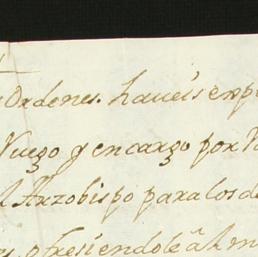 Ordenes. haveis
Ruego y encargo por
Arzobispo para los
ofresiendole â